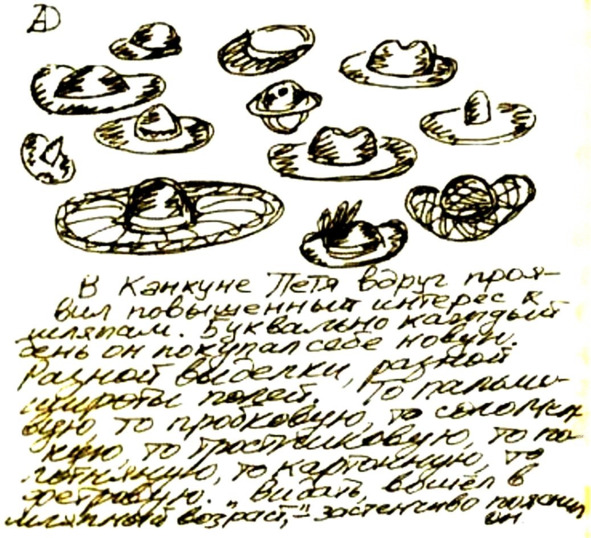 В Канкуне Петя вдруг проя-
вил повышенный интерес к
шляпам. Буквально каждый
день он покупал себе новую.
Разной выделки, разной
широты полей. То пальмо-
вую, то пробковую, то соломен-
ную, то тростниковую, то по-
лотняную, то картонную, то
фетровую. "Видать, вышел в
шляпный возраст," - застенчиво пояснил
он.